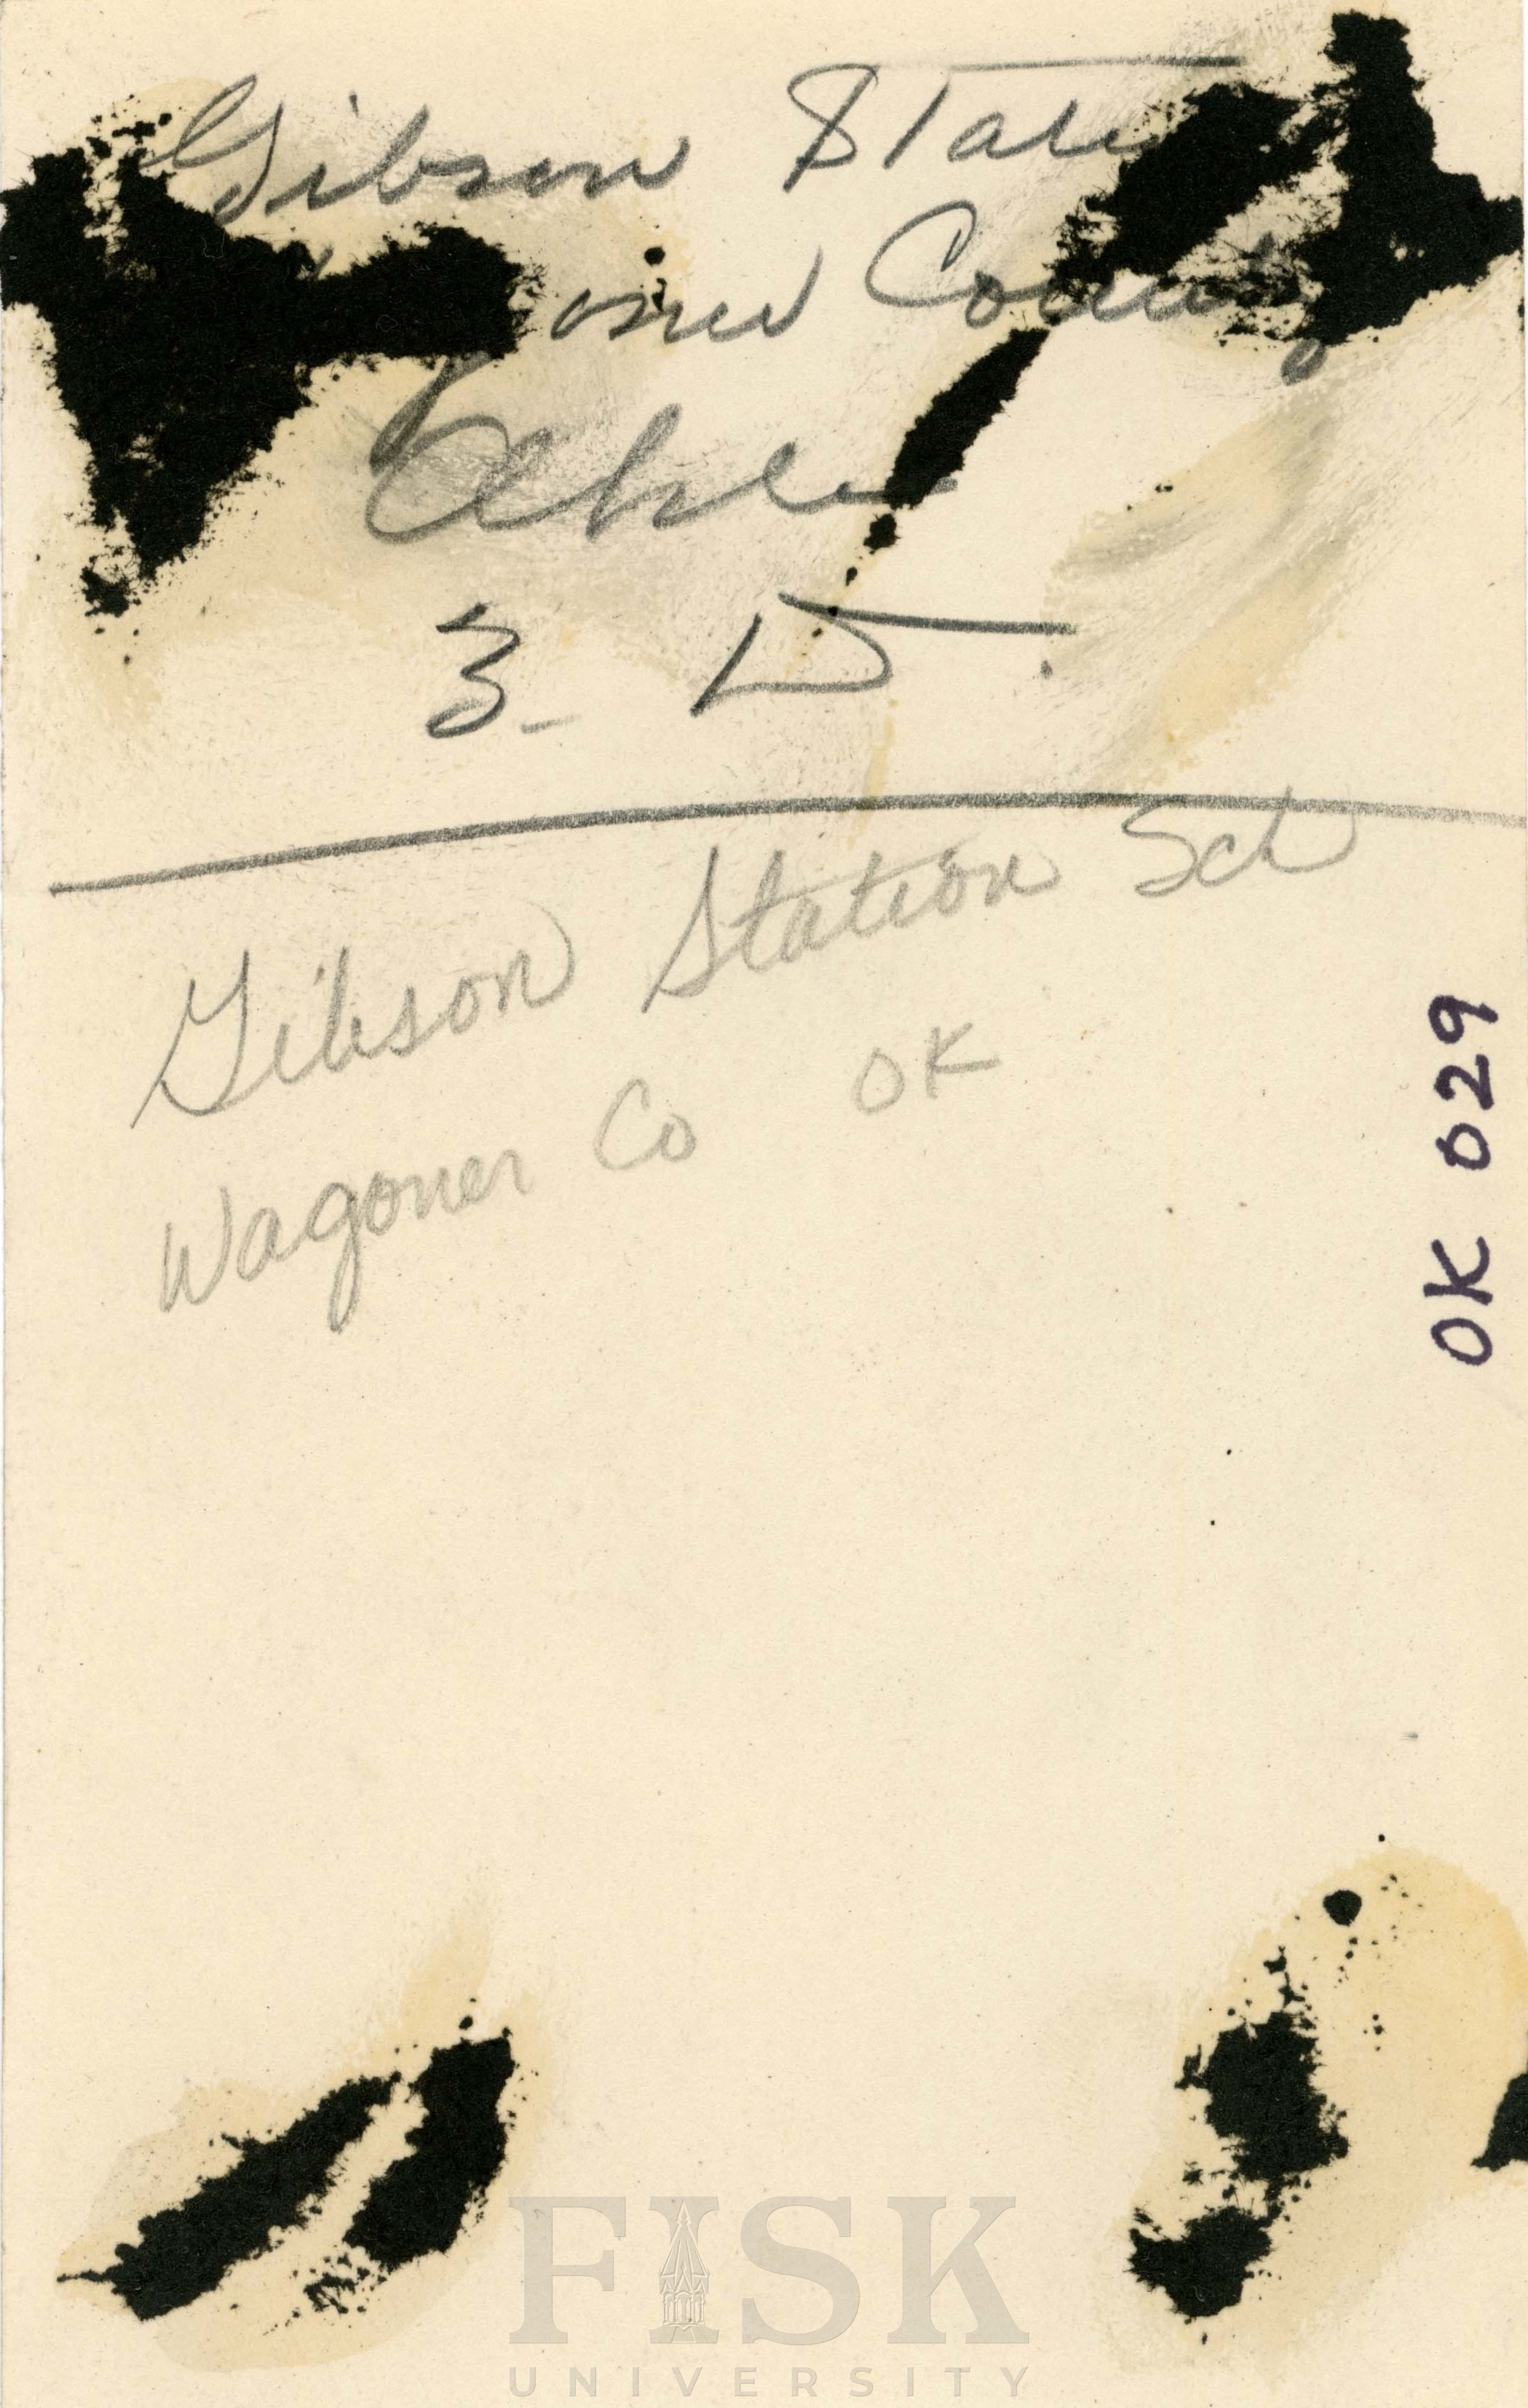 Gibson Stati
oner County
Okla
3- D.
Gibson Station Sch
Wagoner Co OK
OK 029
FISK
UNIVERSITY